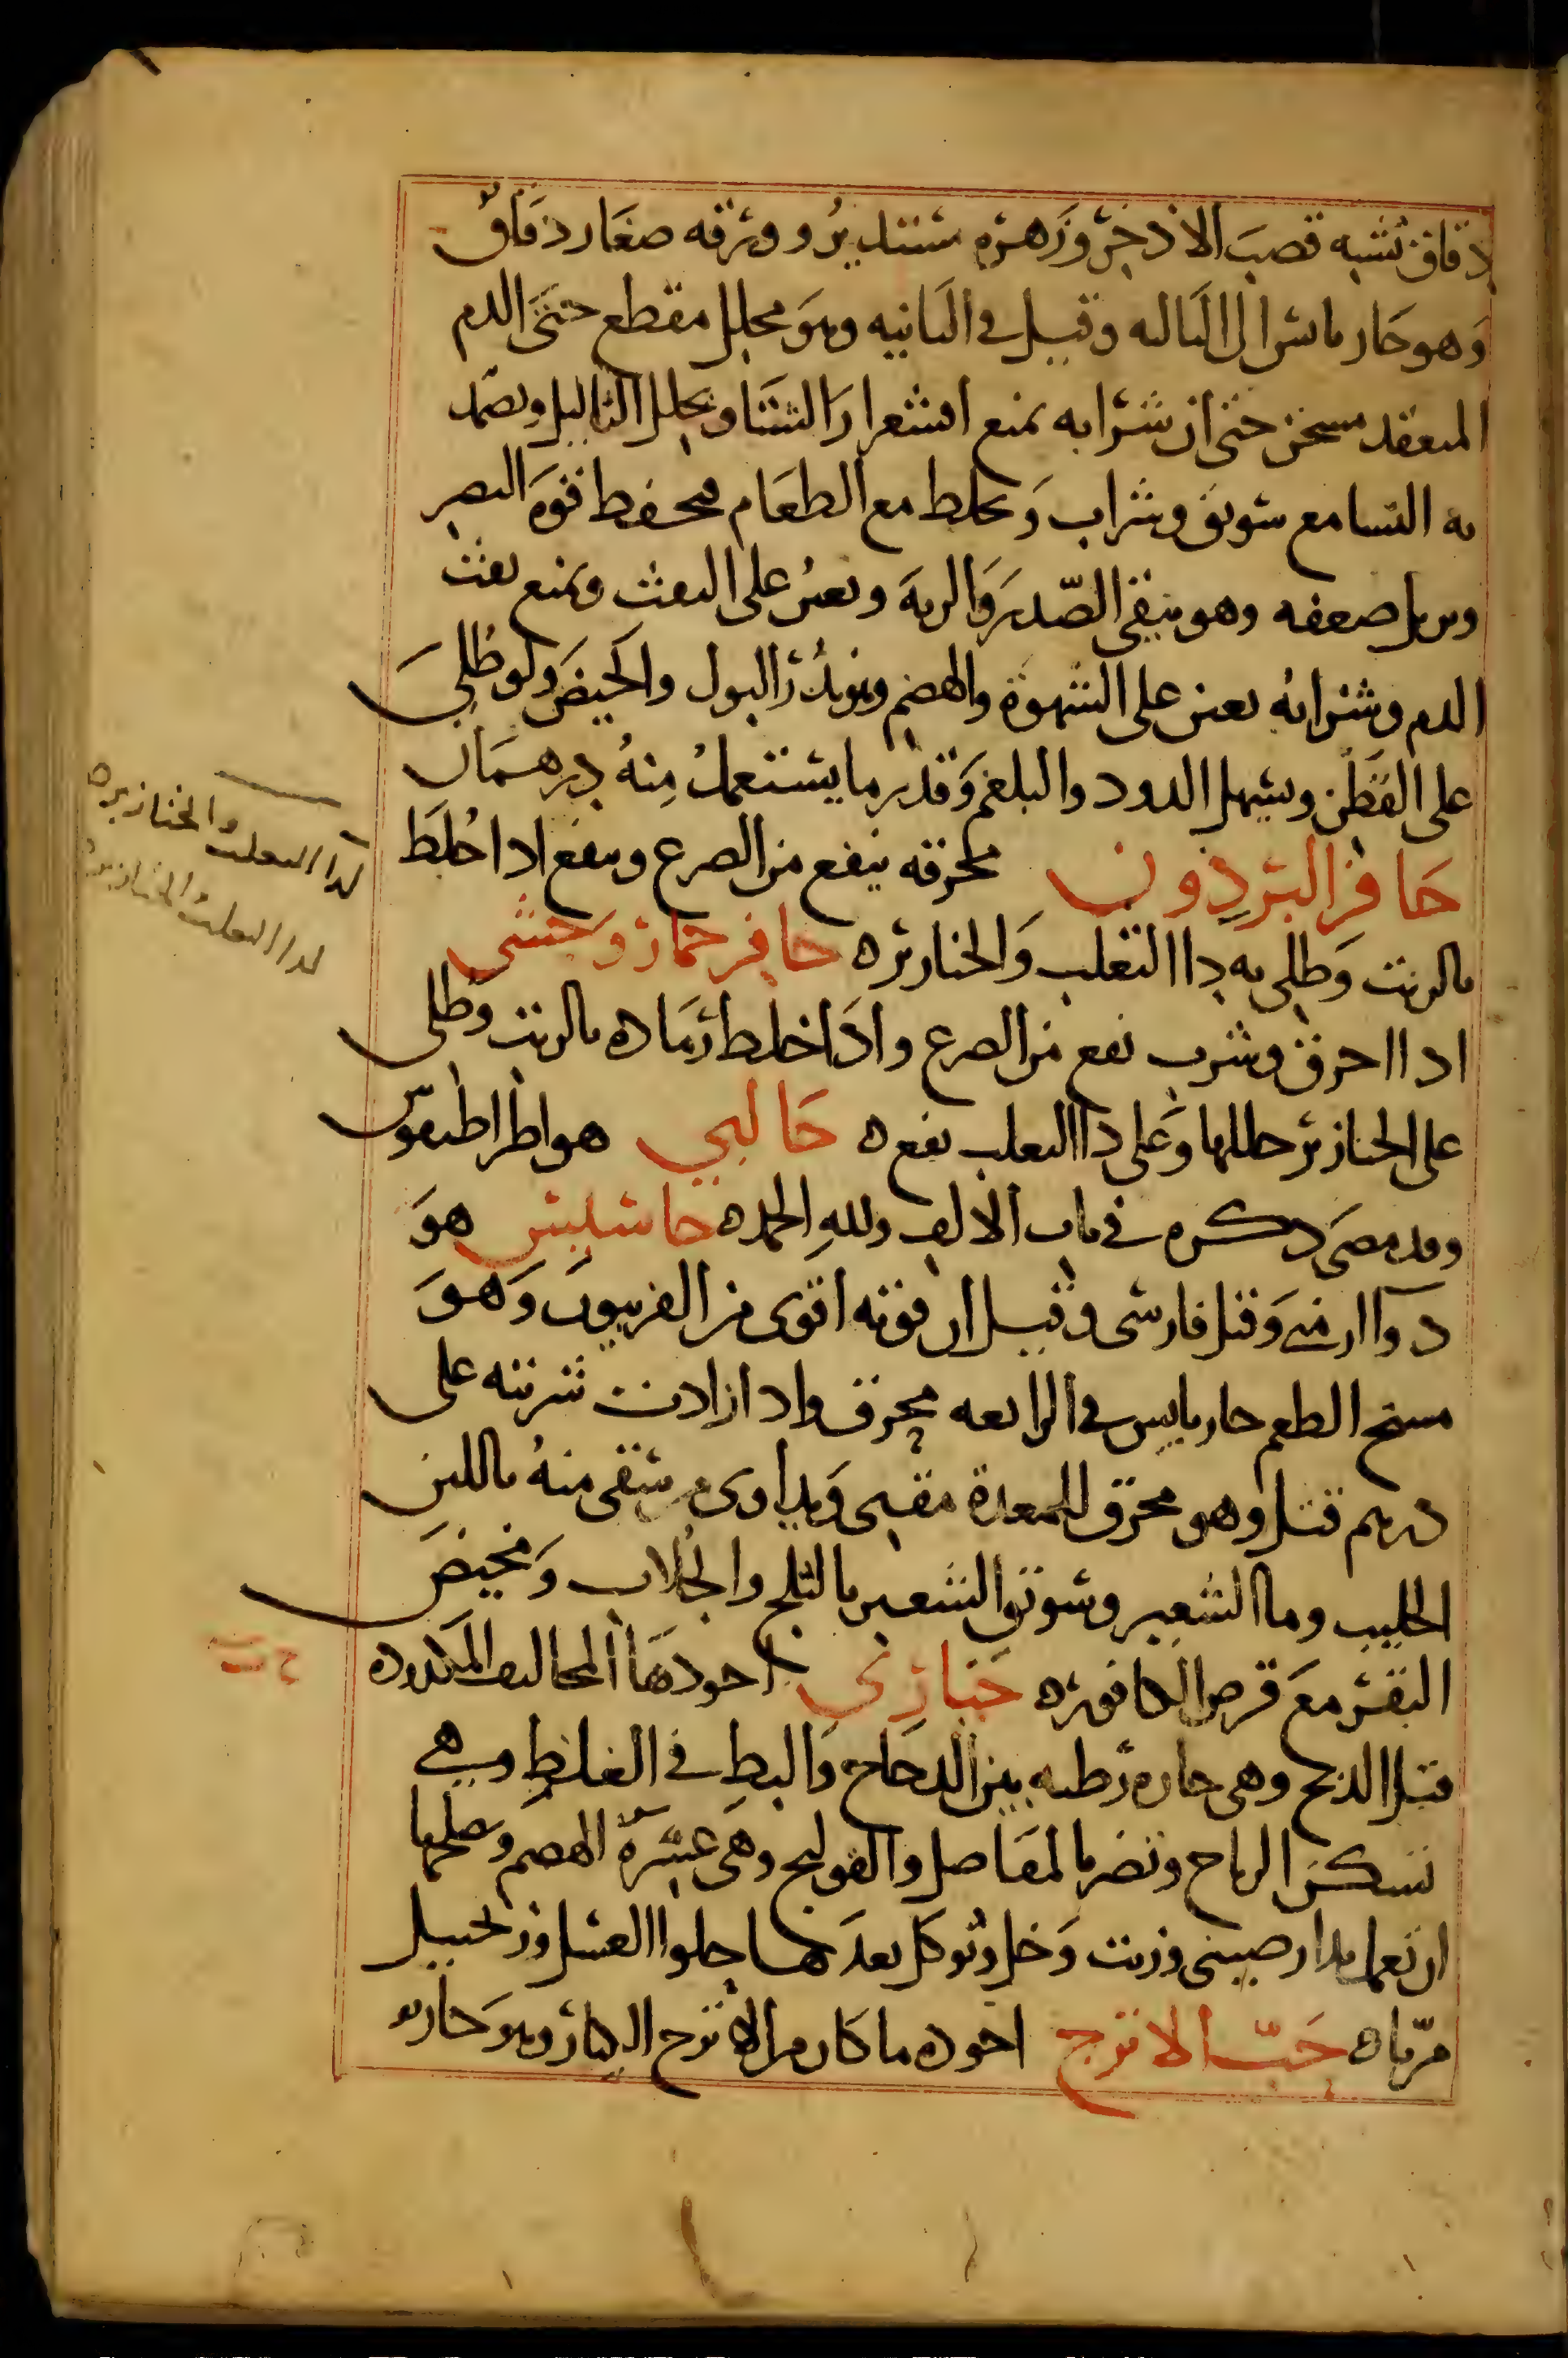 دقاق تشبه قصب الاذخر وزهره مستدير وورقه صغار دقاق
وهو حار يابس الى الثالثه وقيل في الثانيه وهو محلل مقطع حتى الدم
المنعقد مسخن حتى ان شرابه يمنع اقشعرار الشتا ويحلل الثاليل ويضمد
به النسا مع سويق وشراب ويخلط مع الطعام فيحفظ قوة البصر
ويزيل ضعفه وهو ينقي الصدر والريه ويعين على النفث ويمنع نفث
الدم وشرابه يعين على الشهوة والهضم وهو يدر البول والحيض ولو طلي
على القطن ويسهل الدود والبلغم وقدر ما يستعمل منه درهمان
حافر البردون محرقه ينفع من الصرع وينفع ادا اخلط
بالزيت وطلي به داا الثعلب والخنازيره حافر حمار وحشي
اداا احرق وشرب نفع من الصرع وادا خلط رماده بالزيت وطلى
على الخنازير حللها وعلى داا الثعلب نفع ه حالبي هو اطراطيقوس
وقد مضى دكره في باب الالف ولله الحمد ه حاشيش هو
دوآ ارمني وقيل فارسي وقيل ان قوته اقوى من الفربيون وهو
مسيخ الطعم حار يابس في الرابعه محرق وادا زادت شربته على
درهم قتل وهو محرق للمعدة مقيى ويداوى من سقى منه باللبن
الحليب وماا الشعير وسويق الشعير بالثلج والجلاب ومخيض
البقر مع قرص الكافوره حبارى اجودها المخاليف المكدوده
قبل الذبح وهي حاره رطبه بين الدجاج والبط في الغلظ وهي
تسكن الرياح وتضر بالمفاصل والقولنج وهي عسرة الهضم وصلحها
ان تعمل بدارصيني وزيت وخل وتوكل بعدها حلوا العسل وزنجبيل
مرباه حب الاترج اجوده ما كان من الاترج الكبار وهو حار
لداا الثعلب والخنازيره
لداا الثعلب والخنازيره